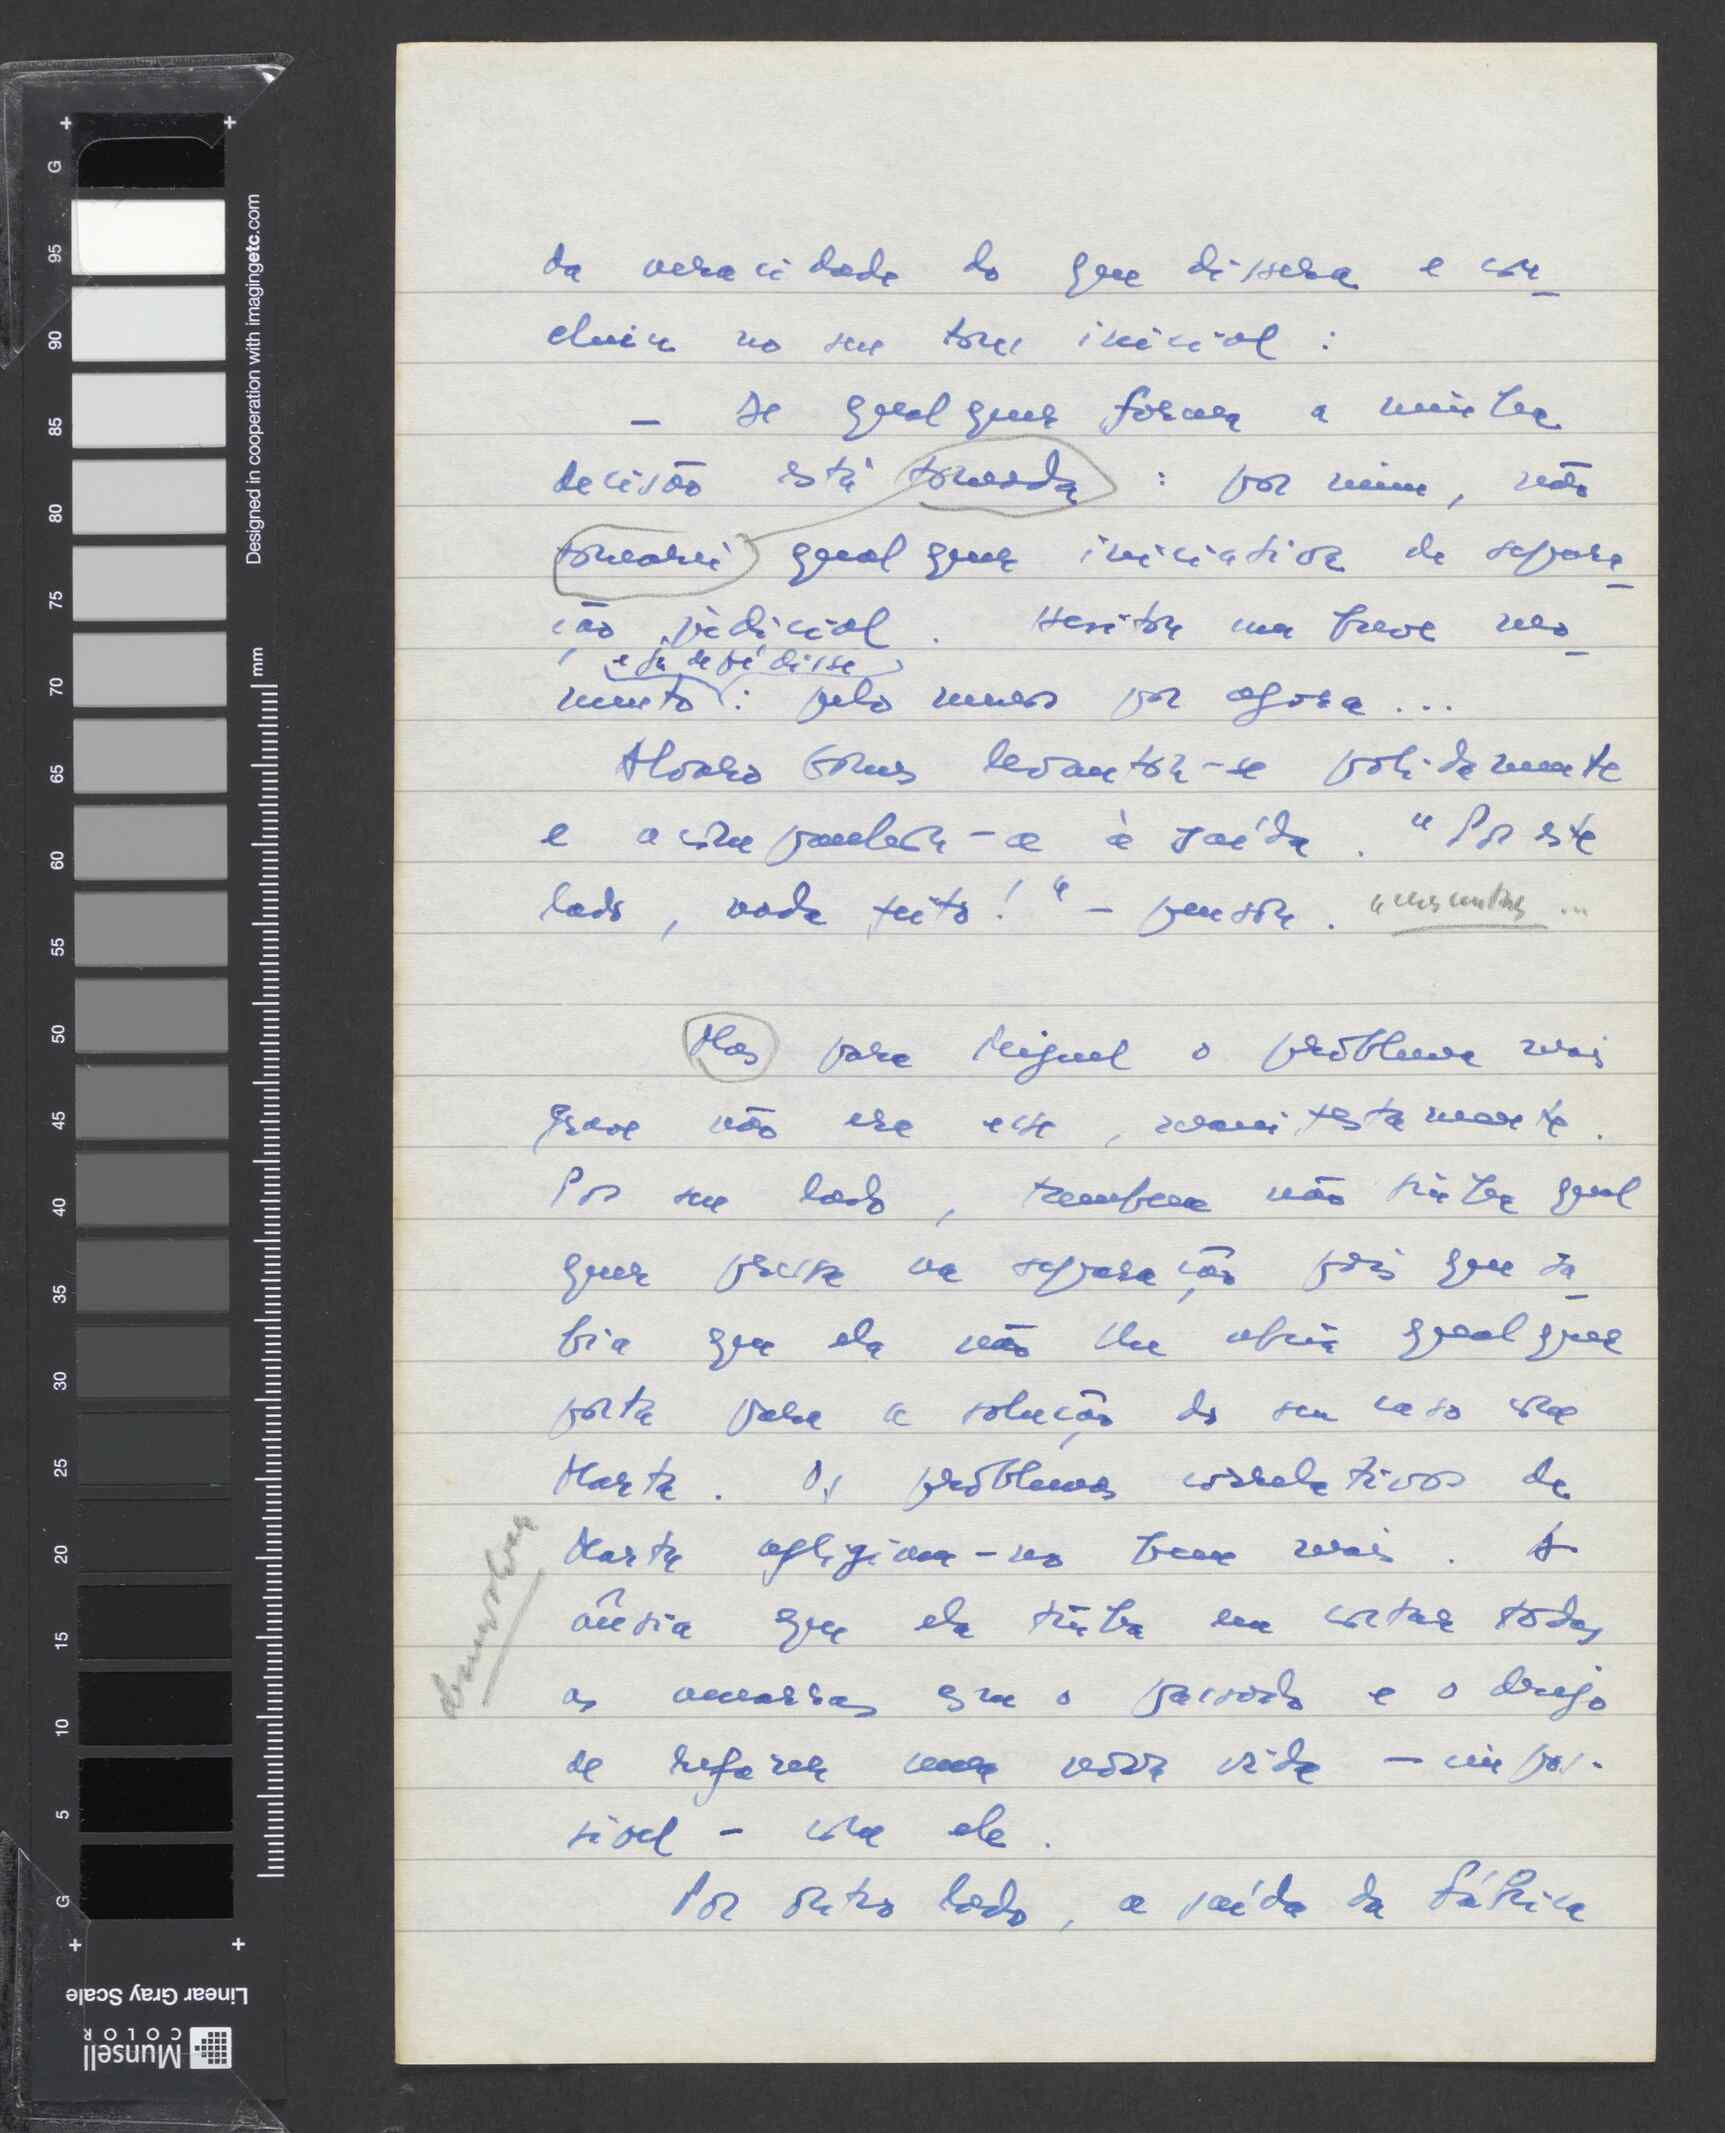 da veracidade do que dissera e con
cluiu no seu tom inicial :
— De qualquer forma a minha
decisão está tomada : por mim, não
tomarei qualquer iniciativa de separa
ção judicial . Hesitou um breve mo
e já de pé disse
mento : pelo menos por agora ...
Alvaro levantou-se polidamente
e acompanhou-a à saída . "Por este
lado , nada feito ! " — pensou .
Mas para Miguel o problema mais
grave não era esse , manifestamente .
Por seu lado , também não tinha qual
quer pressa na separação pois que sa
bia que ela não lhe abria qualquer
porta para a solução do seu caso com
Marta . Os problemas correlativos de
Marta afligiam-no bem mais . A
ânsia que ela tinha em cortar todas
as amarras com o passado e o desejo
de refazer uma nova vida — impos-
sível — com ele .
Por outro lado , a saída da fábrica
G 95 90 85 80 75 70 65 60 55 50 45 40 35 30 25 20 15 10 5 G
mm
Designed in cooperation with imagingetc.com
Linear Gray Scale
Munsell
COLOR